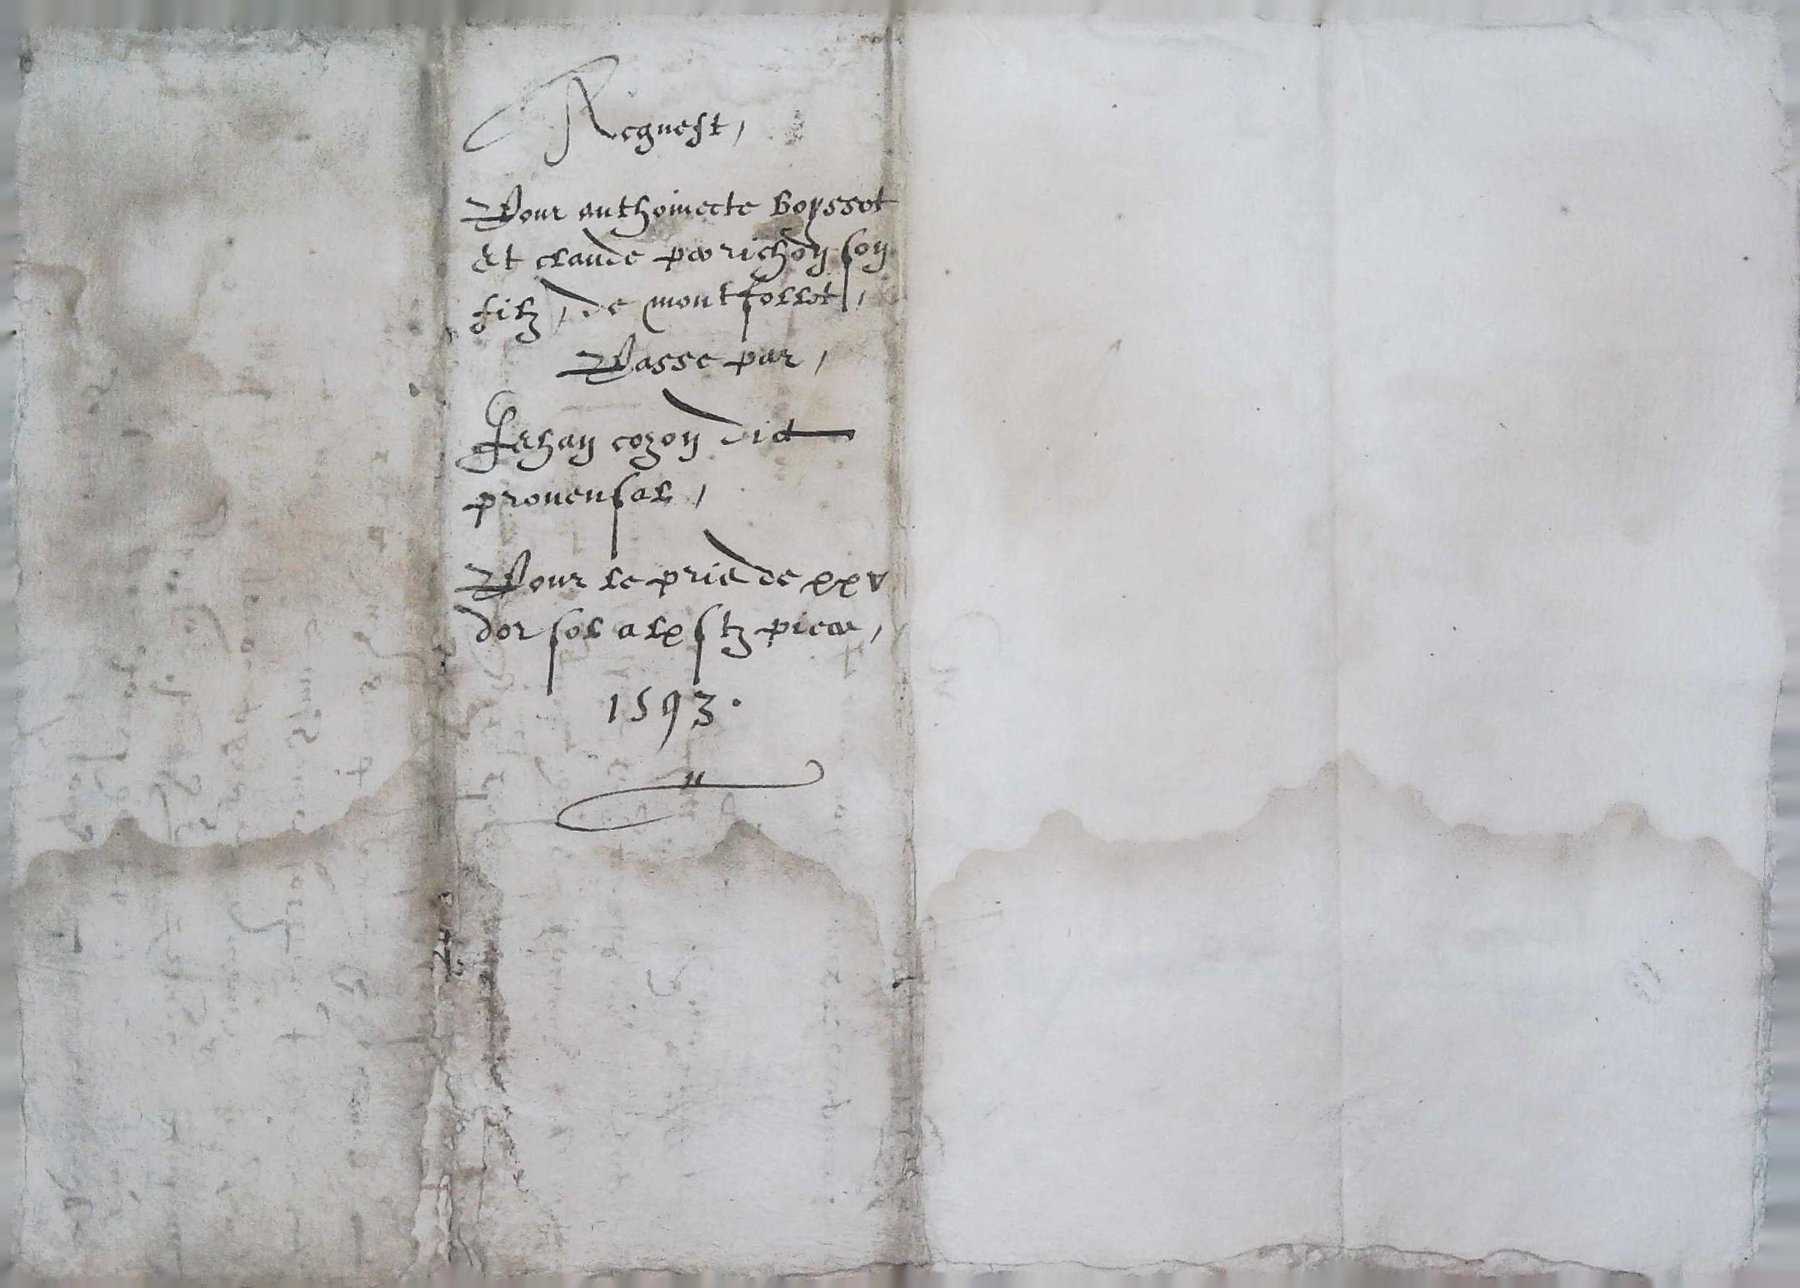 Request,
Pour anthoinette boysset
Et claude perichon son
filz, de montfollet,
Passe par,
Jehan cozon dict
provensal,
Pour le pris de xxv
dor sol a lx stz piece,
1593.